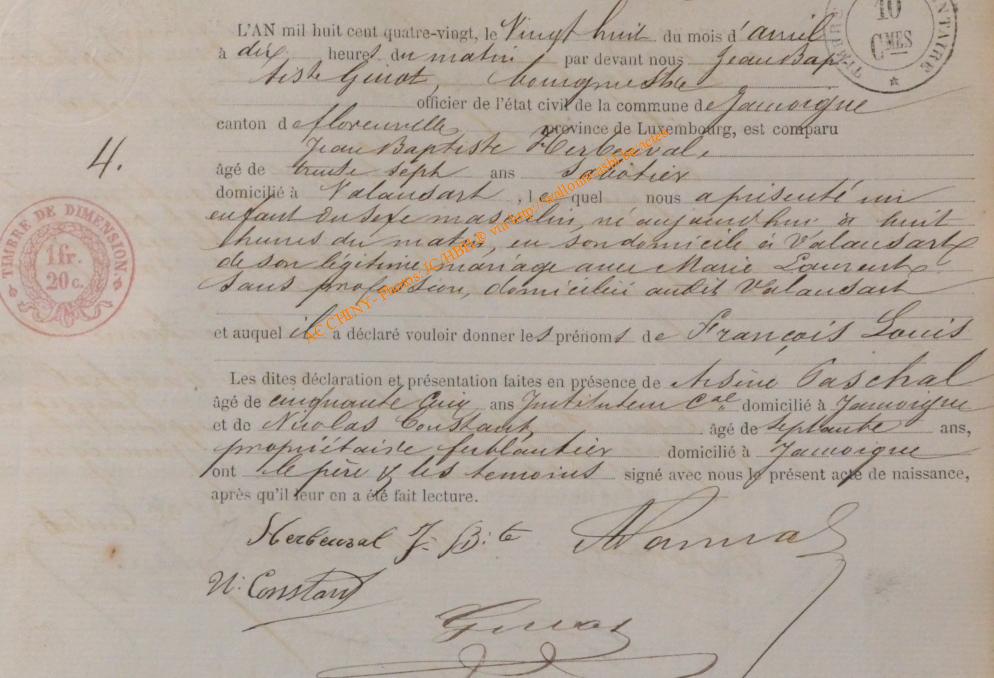 L'AN mil huit cent quatre-vingt, le Vingt huit du mois d'avril
à dix heures du matin par devant nous Jean Bap
tiste Guiot, bourgmestre
officier de l'état civil de la commune de Jamoigne
canton de florenville province de Luxembourg, est comparu
Jean Baptiste Herbeuval,
4.
âgé de trente sept ans Sabotier
domicilié à Valansart, lequel nous a présenté un
enfant du sexe masculin, né aujourd'hui à huit
heures du matin, en son domicile à Valansart
de son légitime mariage avec Marie Laurent
Sans profession, domiciliée audit Valansart
et auquel il a déclaré vouloir donner les prénoms de François Louis
Les dites déclaration et présentation faites en présence de Arsène Paschal
âgé de cinquante Cinq ans Instituteur Cal domicilié à Jamoigne
et de Nicolas Constant âgé de Septante ans,
propriétaire domicilié à Jamoigne
ont le père & les temoins signé avec nous le présent acte de naissance,
après qu'il leur en a été fait lecture.
Herbeuval J. B.te
N. Constant
Guiot
TIMBRE DE DIMENSION
1 fr.
20 c.
10
CMES
TIMBRE
AC CHINY - Photos JC HBHL® via http://